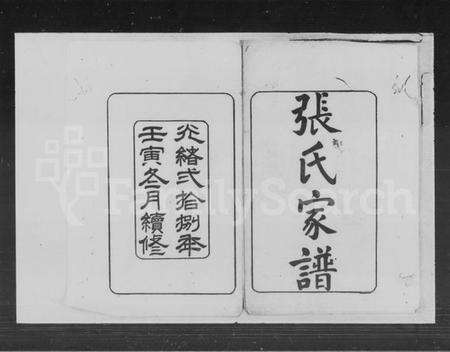 張氏家譜
光緒弐拾捌年
壬寅冬月續修
FamilySearch